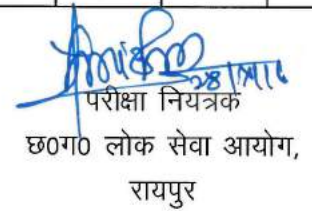 परीक्षा नियंत्रक
छ0ग0 लोक सेवा आयोग,
रायपुर